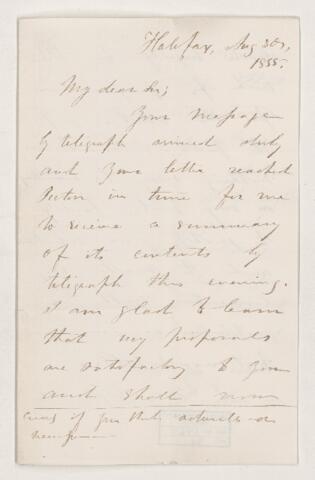 Halifax, Aug 30,
1855.
My dear Sir;
Your message
by telegraph arrived duly
and your letter reached
Pictou in time for me
to receive a summary
of its contents by
telegraph this evening.
I am glad to learn
that my proposals
are satisfactory to you
and shall now
if you